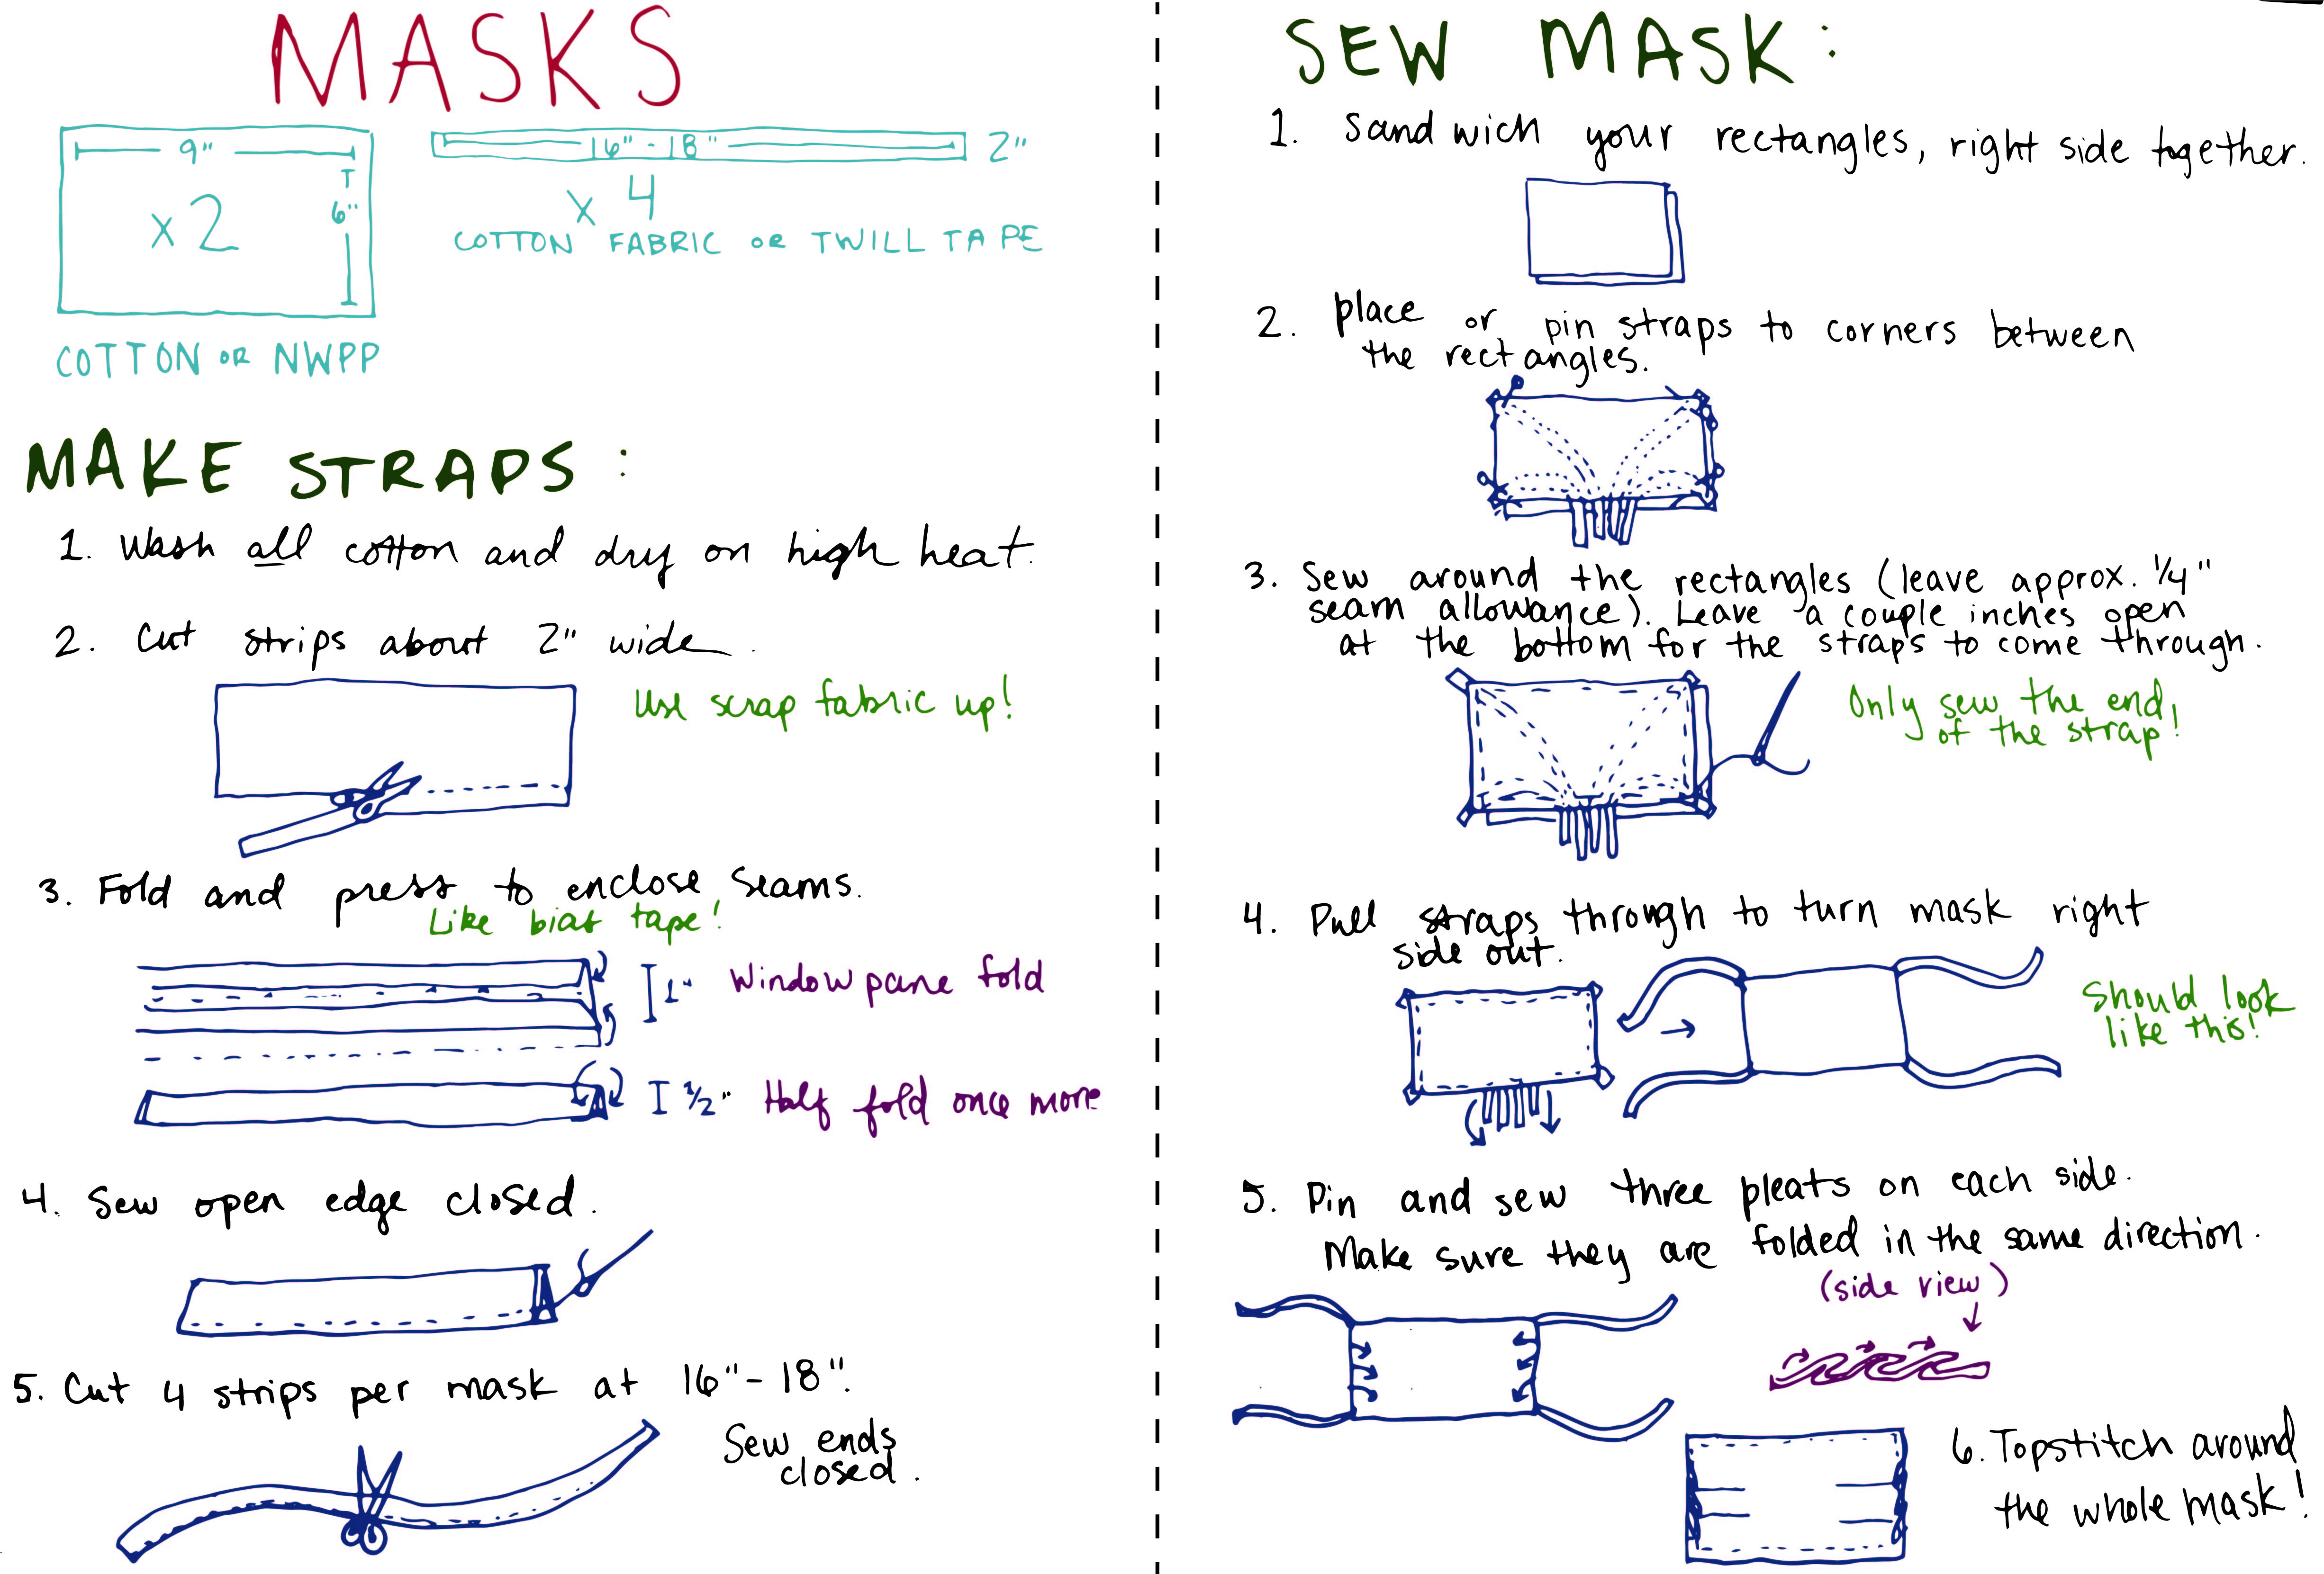 MASKS
9"
x 2
6"
COTTON OR NWPP
16"-18"
2"
x 4
COTTON FABRIC OR TWILL TAPE
MAKE STRAPS:
1. Wash all cotton and dry on high heat.
2. Cut strips about 2" wide.
Use scrap fabric up!
3. Fold and press to enclose seams.
Like bias tape!
1" Window pane fold
1/2" Half fold once more
4. Sew open edge closed.
5. Cut 4 strips per mask at 16"-18".
Sew ends
closed.
SEW MASK:
1. Sandwich your rectangles, right side together.
2. Place or pin straps to corners between
the rectangles.
3. Sew around the rectangles (leave approx. 1/4"
seam allowance). Leave a couple inches open
at the bottom for the straps to come through.
Only sew the end
of the strap!
4. Pull straps through to turn mask right
side out.
Should look
like this!
5. Pin and sew three pleats on each side.
Make sure they are folded in the same direction.
(side view)
6. Topstitch around
the whole mask!